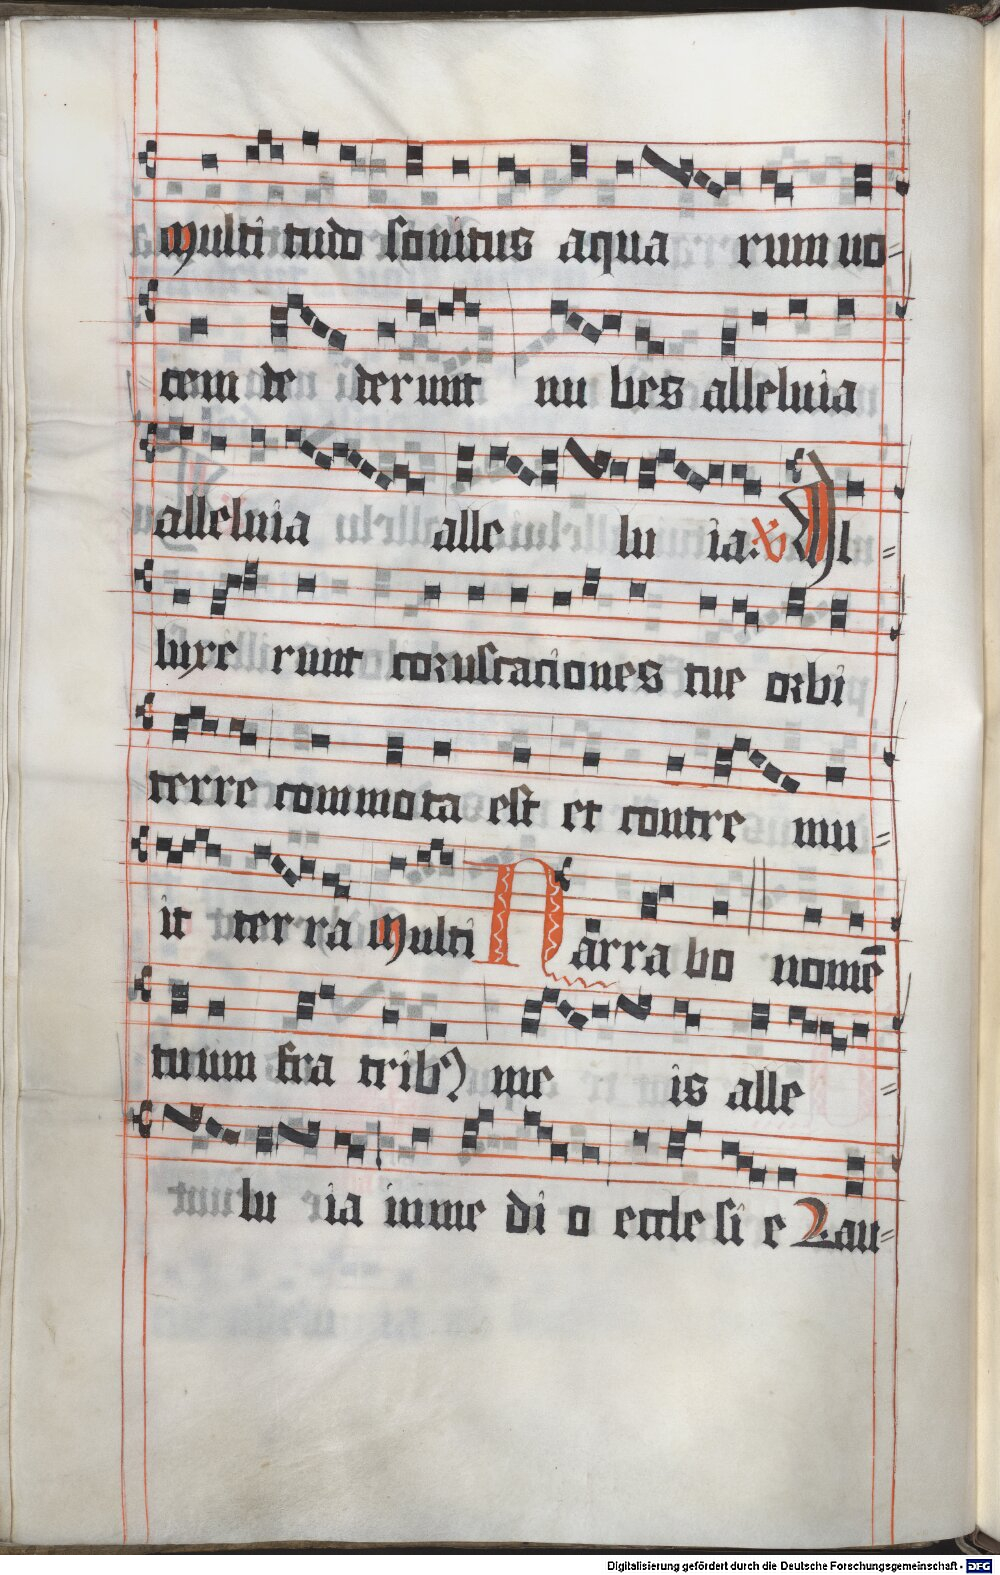 multi tudo sonitus aqua rum uo=
cem de derunt nu bes alleluia
alleluia alle lu ia. ℣ Il=
luxe runt coruscaciones tue orbi
terre commota est et contre mu=
it terra Multi Narra bo nomē
tuum fra tribꝰ me is alle=
lu ia in me di o eccle si e Lau=
Digitalisierung gefördert durch die Deutsche Forschungsgemeinschaft - DFG